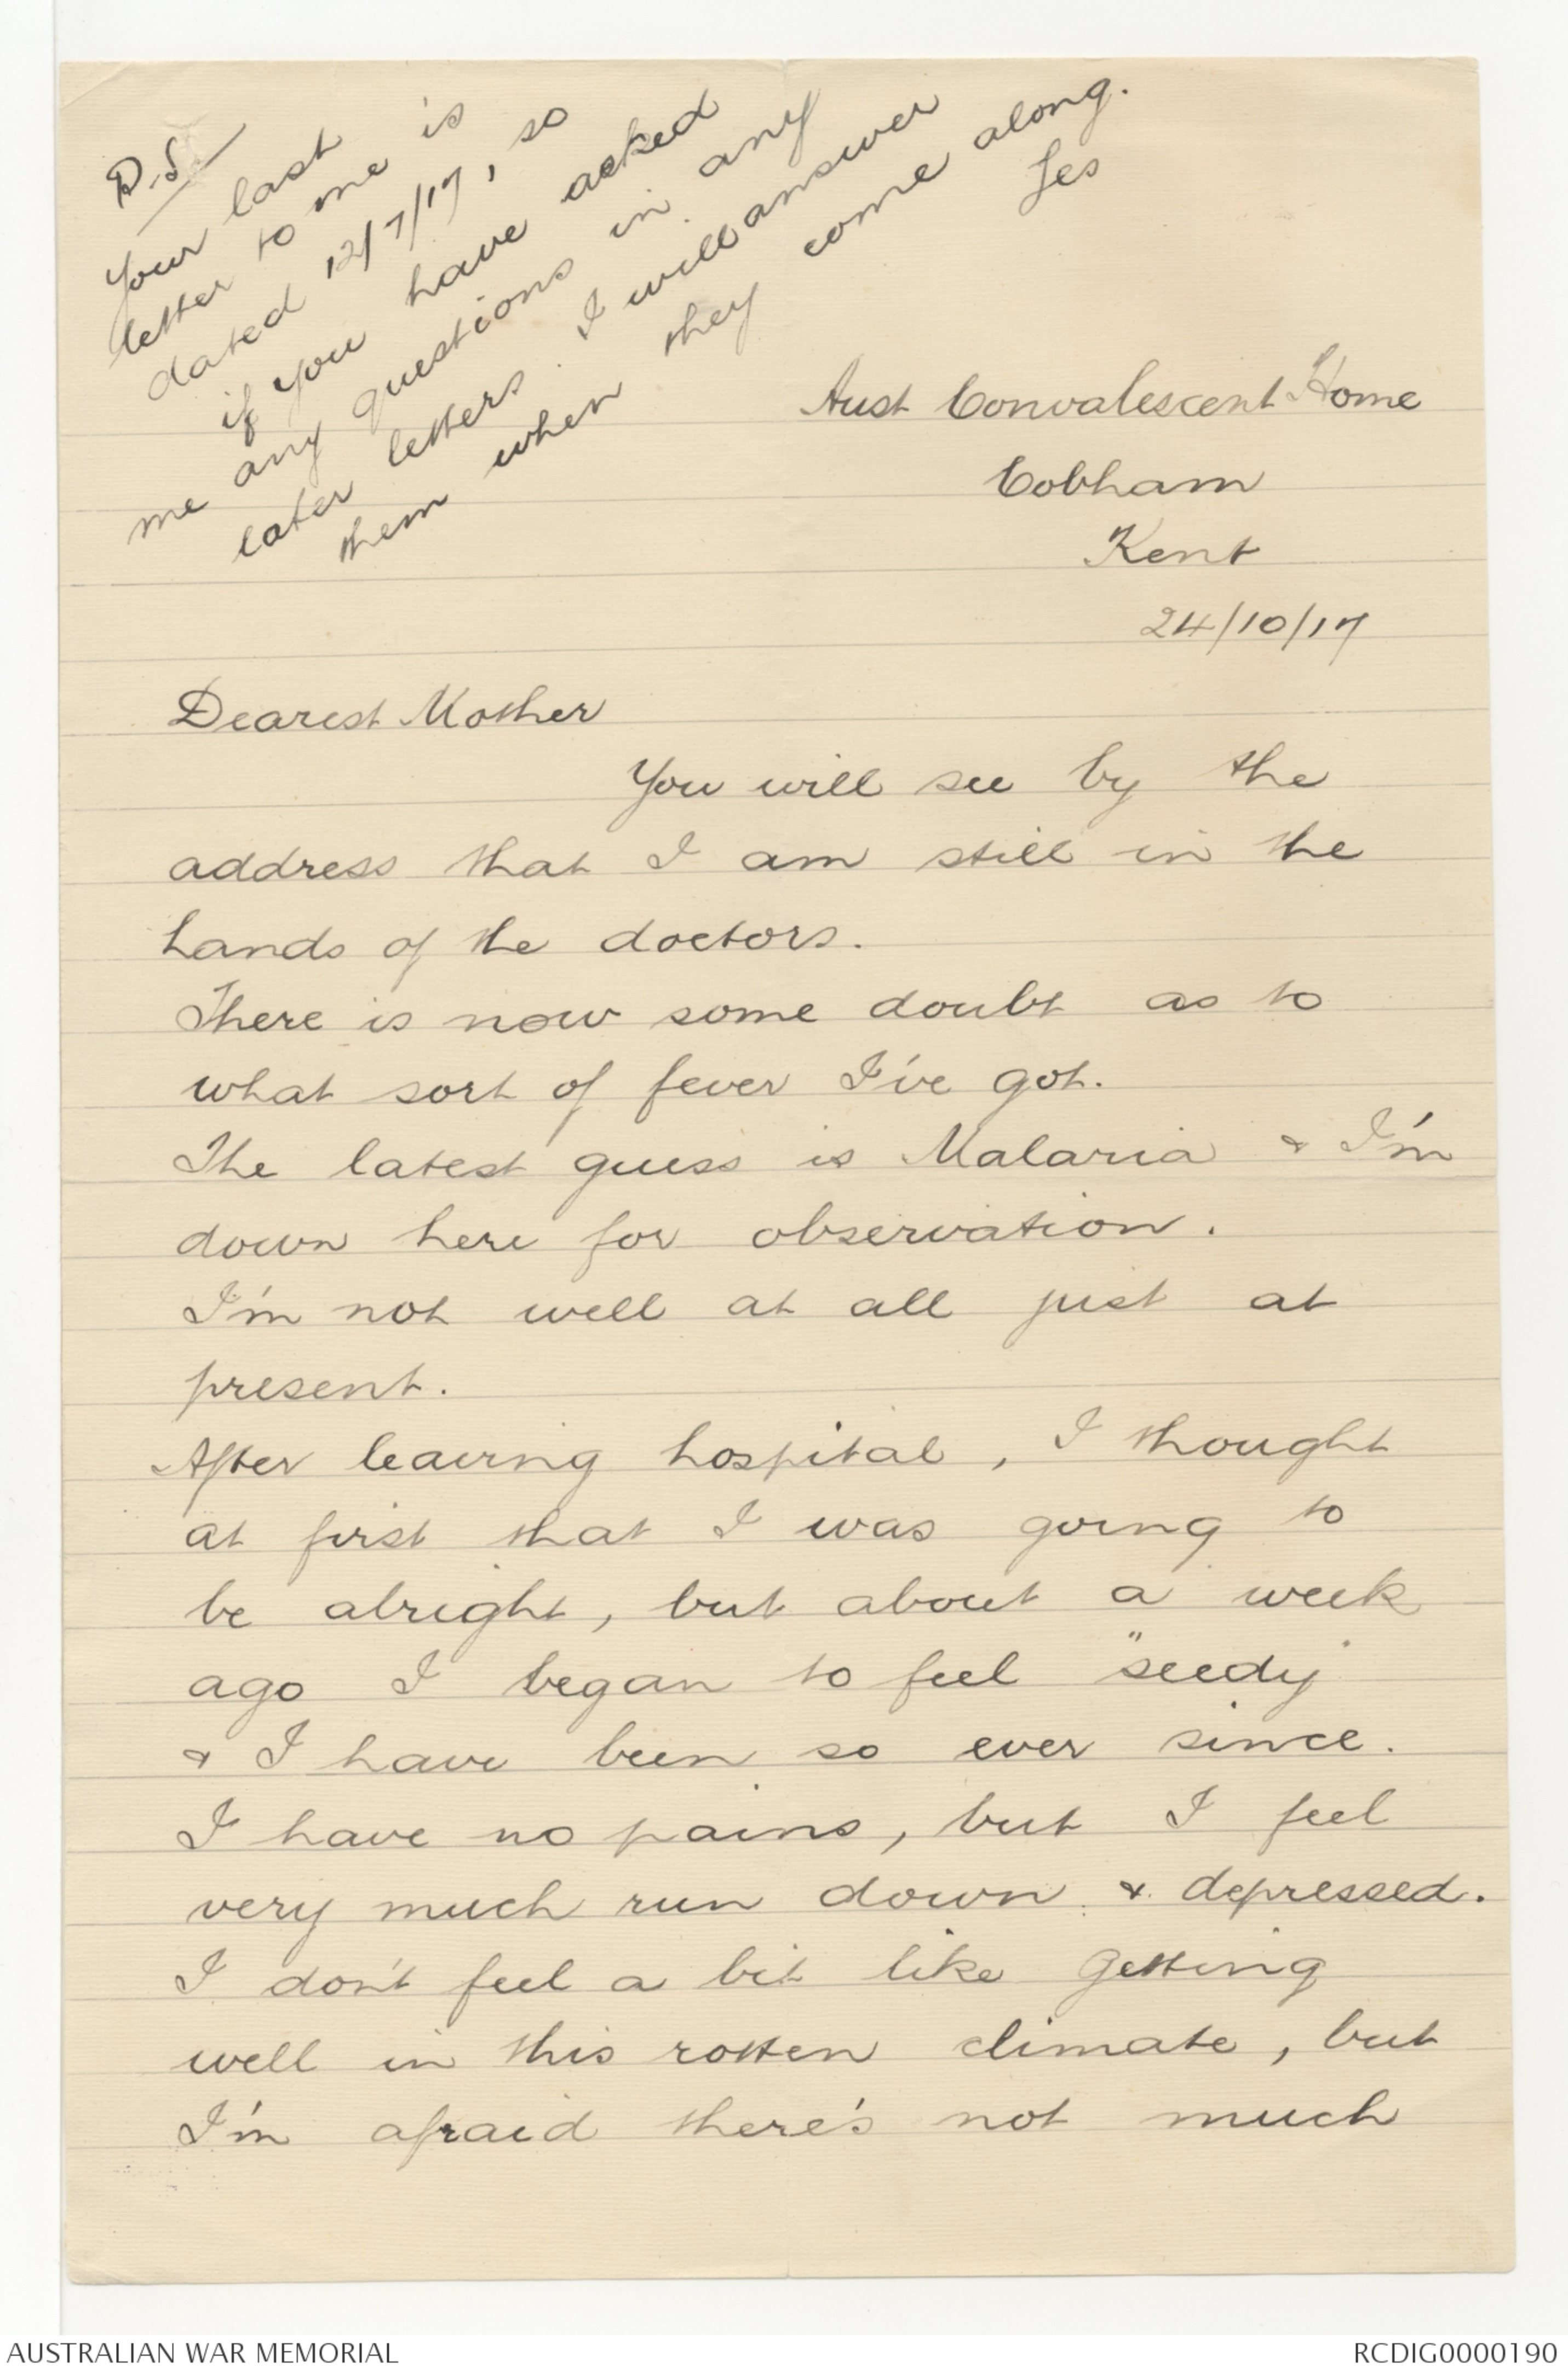 P.S.
Your last
letter to me is
dated 12/7/17, so
if you have asked
me any questions in any
later letters I will answer
them when they come along.
Les
Aust Convalescent Home
Cobham
Kent
24/10/17
Dearest Mother
You will see by the
address that I am still in the
hands of the doctors.
There is now some doubt as to
what sort of fever I've got.
The latest guess is Malaria & I'm
down here for observation.
I'm not well at all just at
present.
After leaving hospital, I thought
at first that I was going to
be alright, but about a week
ago I began to feel "seedy"
& I have been so ever since.
I have no pains, but I feel
very much run down & depressed.
I don't feel a bit like getting
well in this rotten climate, but
I'm afraid there's not much
AUSTRALIAN WAR MEMORIAL
RCDIG0000190